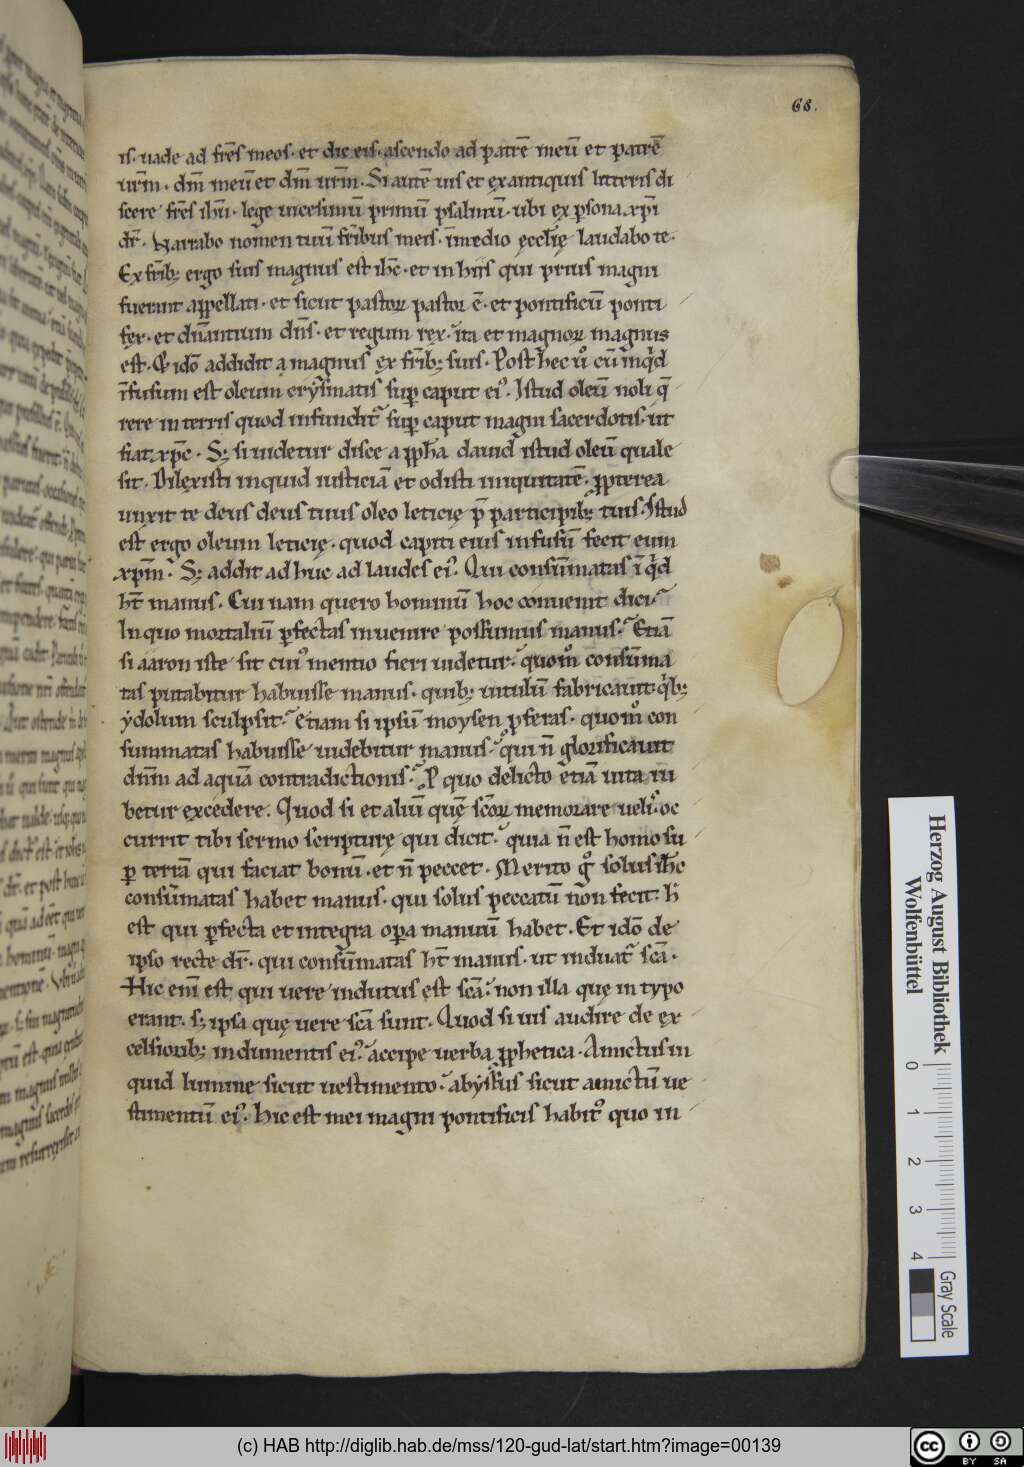 68.
is. uade ad fr̄es meos. et dic eis. ascendo ad patrē meū et patrē
ur̄m. dm̄ meū et dm̄ ur̄m. Si autē uis et ex antiquis litteris di
scere fr̄es ih̄u. lege uicesimū primū psalmū. ubi ex psona xp̄i
dr̄. Narrabo nomen tuū fr̄ibus meis. in medio ęcclię laudabo te.
Ex frib; ergo suis magnus est ih̄c. et in hijs qui prius magni
fuerunt appellati. et sicut pastoꝝ pastor ē. et pontificū ponti
fex. et dn̄antium dn̄s. et regum rex. ita et magnoꝝ magnus
est. Et idō addidit a magnus ex frib; suis. Post hec u͛ cū inq͛d
r̄fusum est oleum crysmatis sup caput ei᾽. Istud oleū noli q̄
rere in terris quod infundit᾽ sup caput magni sacerdotis. ut
fiat xp̄c. S; si uidetur disce a ꝓph̄a dauid istud oleū quale
sit. Dilexisti inquid iusticiā et odisti iniquitatē. ꝓpterea
unxit te deus deus tuus oleo leticię p̄ participib; tuis. Istud
est ergo oleum leticię. quod capiti eius infusū fecit eum
xp̄m. S; addit ad huc ad laudes ei᾽. Qui consūmatas ī q͛d
ht̄ manus. Cui nam quero hominū hoc conuenit dici.
In quo mortaliū ꝑfectas inuenire possumus manus. Etiā
si aaron iste sit cui᾽ mentio fieri uidetur. quom͛ consūma
tas putabitur habuisse manus. quib; uitulū fabricauit. q͛b;
ydolum sculpsit. Etiam si ipsū moysen ꝑferas. quom͛ con
summatas habuisse uidebitur manus. qui n̄ glorificauit
dnm̄ ad aquā contradictionis. P quo delicto etiā uita iu
betur excedere. Quod si et aliū quē sc̄oꝝ memorare uelis. oc
currit tibi sermo scripturę qui dicit. quia n̄ est homo su
ꝑ terrā qui faciat bonū. et n̄ peccet. Merito g͛ solus ih̄c
consūmatas habet manus. qui solus peccatū non fecit. h̄
est qui ꝑfecta et integra opa manuū habet. Et idō de
ipso recte dr̄. qui consūmatas ht̄ manus. ut induat᾽ sc̄a.
Hic eni est qui uere indutus est sc̄a. non illa quę in typo
erant. s; ipsa quę uere sc̄a sunt. Quod si uis audire de ex
celsiorib; indumentis ei᾽. accipe uerba ꝓphetica. Amictus in
quid lumine sicut uestimento. abyssus sicut amictū ue
stimentū ei᾽. Hic est mei magni pontificis habit᾽ quo in
Herzog August Bibliothek
Wolfenbüttel
0 1 2 3 4
Gray Scale
(c) HAB http://diglib.hab.de/mss/120-gud-lat/start.htm?image=00139
cc BY SA